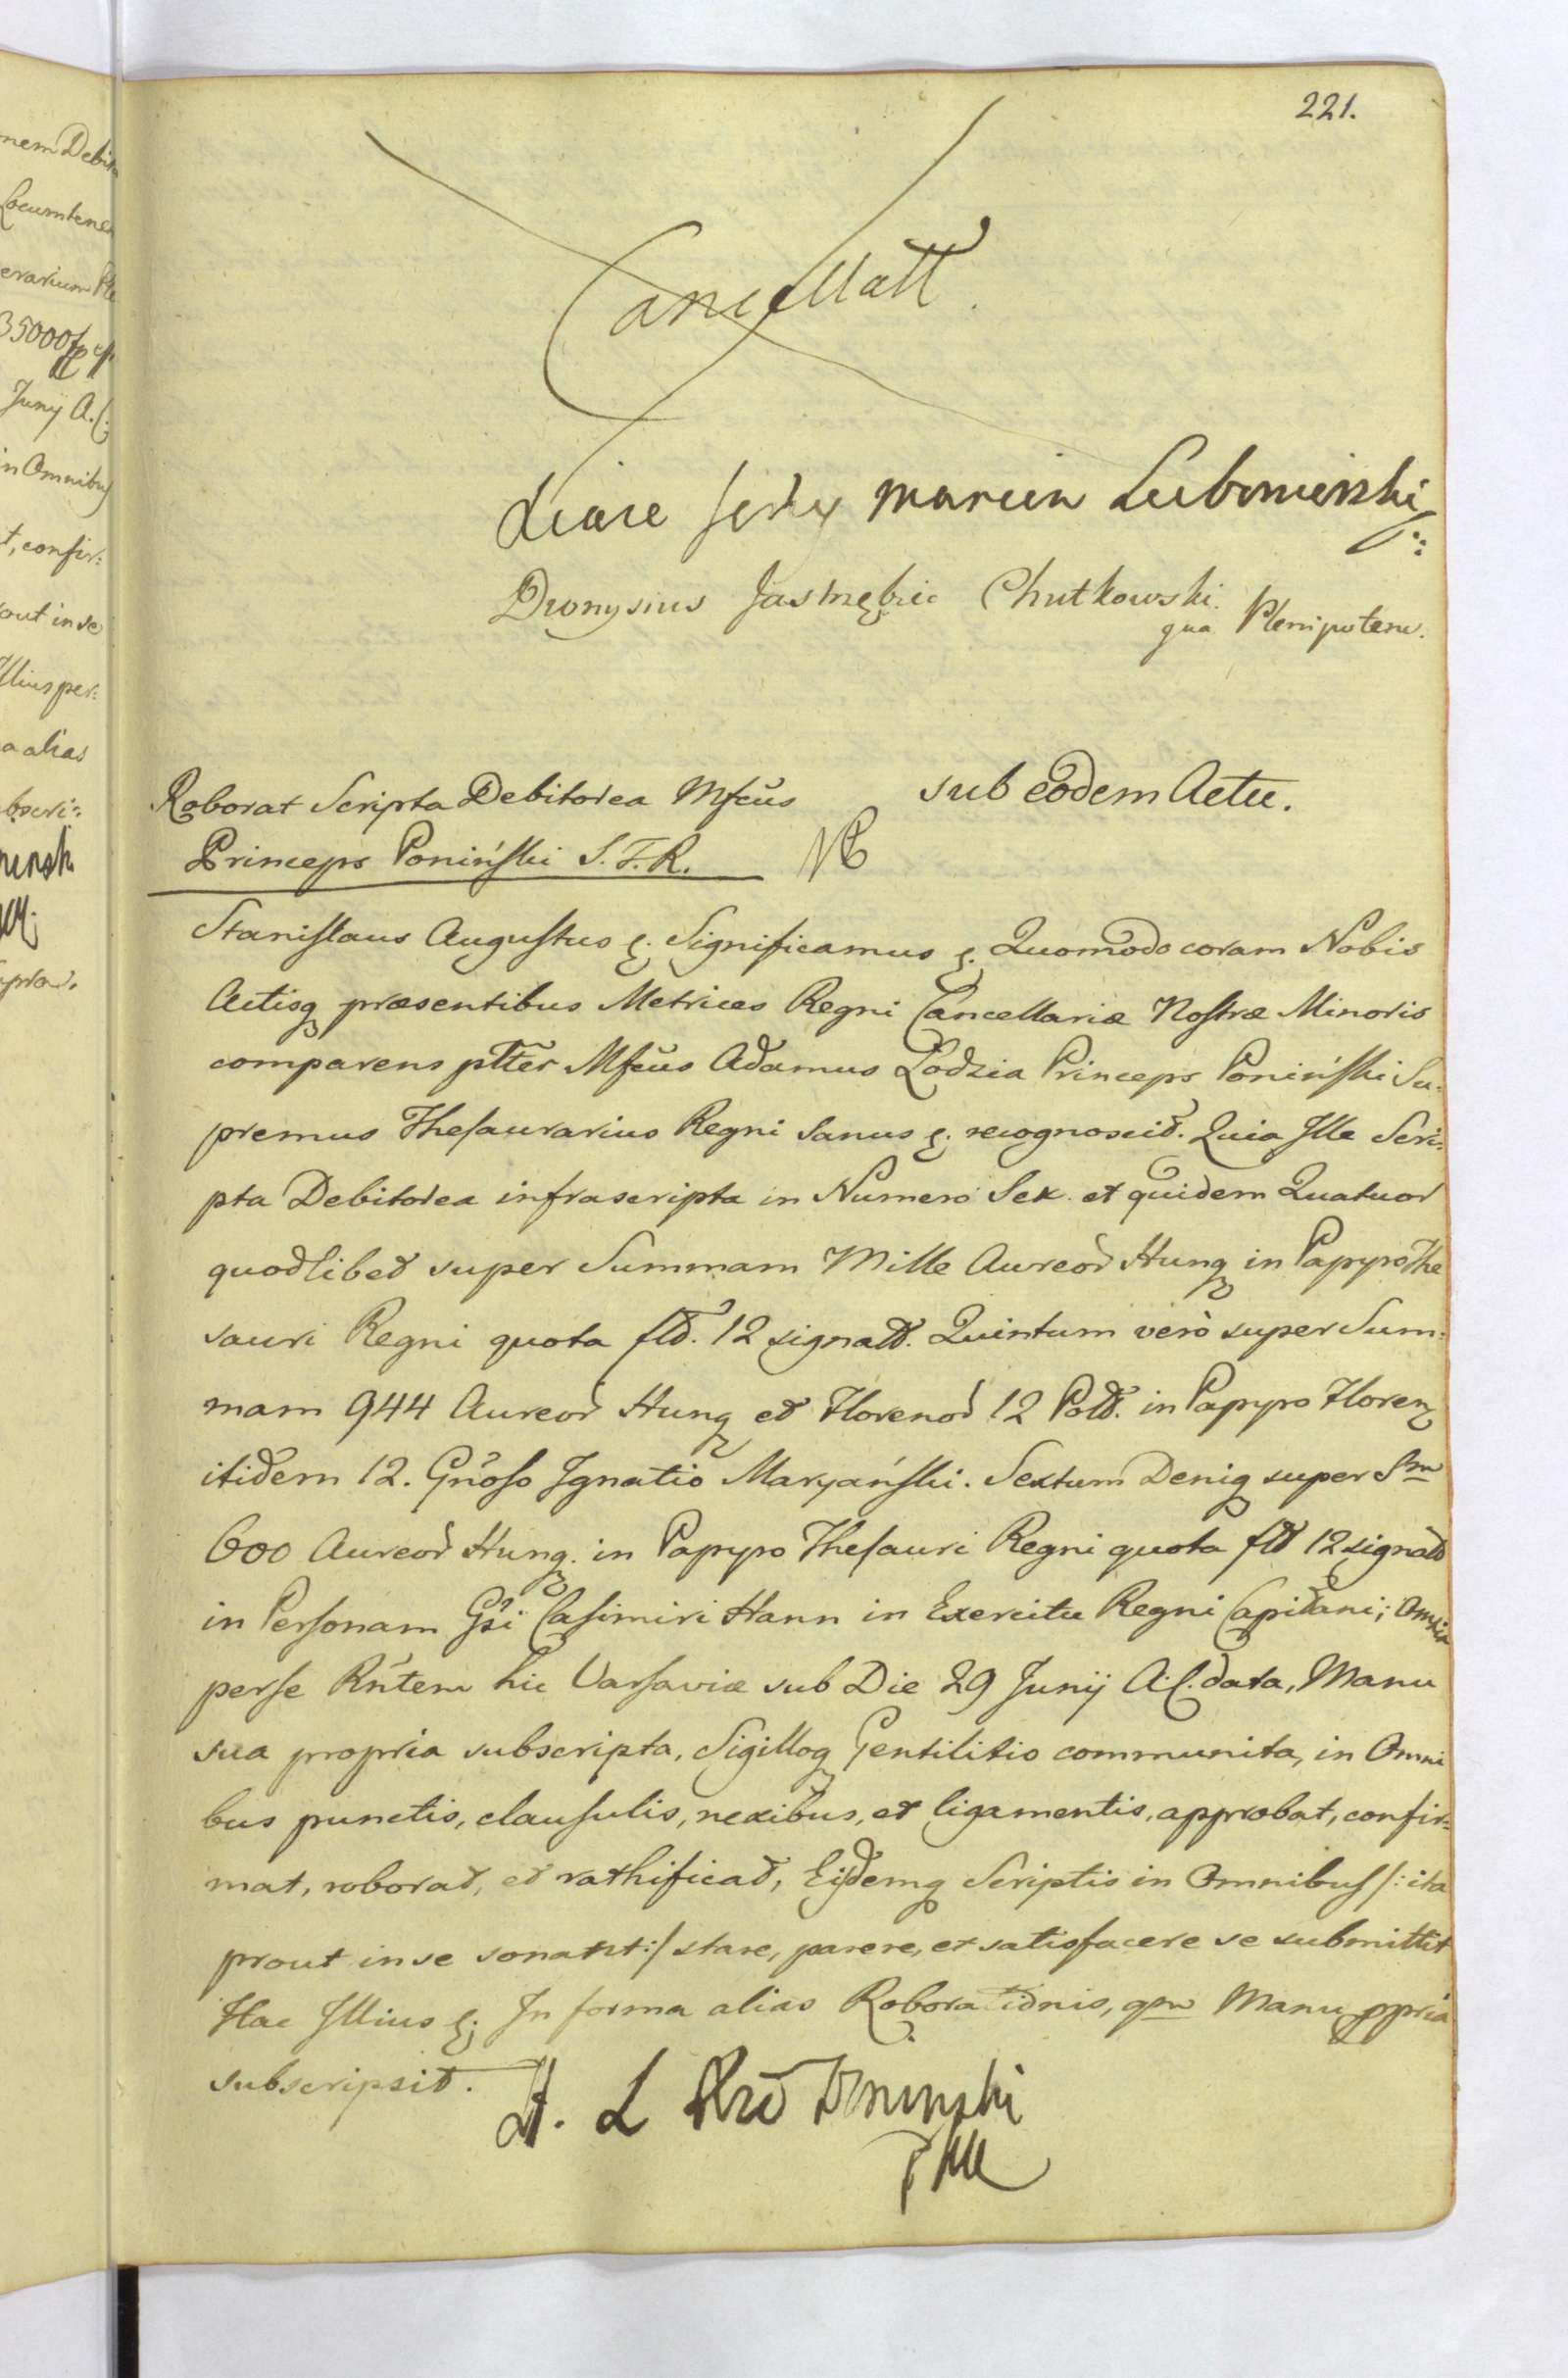 nem Debit
Locumtenen
erarium
35000
Junij A. C.
in Omnibus
t, confir:
out in se
Illius per:
a alias
bscri:
221.
Cancellatt.
Marcin Lubomirski
Dionysius Jastrzębic Chutkowski.
qua Plenipotens.
Roborat Scripta Debitorea Mfcus
sub eodem Actu.
Princeps Poniński S. T. R.
Stanislaus Augustus &. Significamus &. Quomodo coram Nobis
Actisq præsentibus Metrices Regni Cancellariæ Nostræ Minoris
comparens pltter Mfcus Adamus Lodzia Princeps Poniński Su:
premus Thesaurarius Regni Sanus &. recognoscit. Quia Ille Scri:
pta Debitorea infrascripta in Numero Sex et quidem Quatuor
quodlibet super Summam Mille Aureor Hung in Papyro The
sauri Regni quota fld. 12 signatt. Quintum verò super Sum:
mam 944 Aureor Hung et Florenor 12 Poll. in Papyro Floren
itidem 12. Gnoso Ignatio Maryański. Sextum Deniq super Sm
600 Aureor Hung. in Papyro Thesauri Regni quota fld 12 signatt
in Personam Gsi Casimiri Hann in Exercitu Regni Capitani; Omnia
per se Rntem hic Varsaviæ sub Die 29 Junij A. C. data, Manu
sua propria subscripta, Sigilloq Gentilitio communita, in Omni
bus punctis, clausulis, nexibus, et ligamentis, approbat, confir:
mat, roborat, et rathificat, Eisdemq Scriptis in Omnibus /: ita
prout in se sonant :/ stare, parere, et satisfacere se submittit
Hac Illius &. In forma alias Roborationis, qm Manu ppria
subscripsit.
A. L Poninski